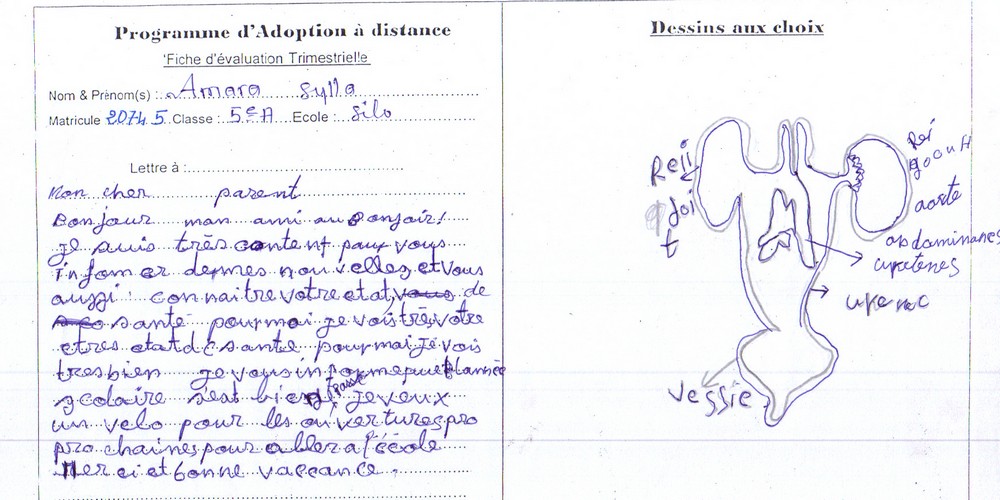 Programme d'Adoption à distance
Fiche d'évaluation Trimestrielle
Nom & Prénom(s) : Amara Sylla
Matricule 20745 Classe : 5e A Ecole : Silo
Lettre à :
Mon cher parent
Bonjour mon ami au Bonjoir!
Je suis très content paux vous
infomer demes nouvelles et vous
aussi connaitre votre etat vous de
santé pourmoi je vois très votre
etres etat dé santé pourmoi je vois
tres bien je vous informe que l'année
scolaire s'est bien passé je veux
un velo pour les ouvertures pro
pro chaines pour aller a l'école
Merci et bonne vaccance.
Dessins aux choix
Reii
doi
t
Rei
goouH
aoste
abdominanes
uretenes
vessie